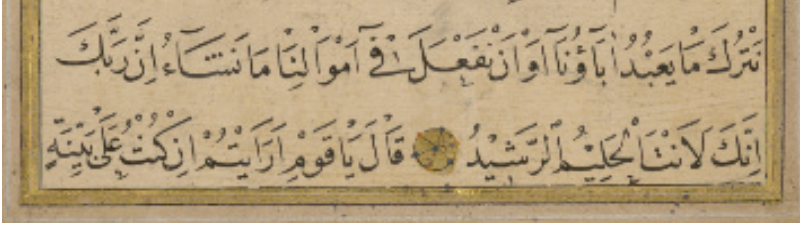 نَتْرُكَ مَا يَعْبُدُ اٰبَاؤُنَآ اَوْ اَنْ نَفْعَلَ فٓى اَمْوَالِنَا مَا نَشَاءُ اِنَّ رَبَّكَ
اِنَّكَ لَاَنْتَ الْحَلِيْمُ الرَّشِيْدُ قَالَ يَا قَوْمِ اَرَاَيْتُمْ اِنْ كُنْتُ عَلٰى بَيِّنَةٍ